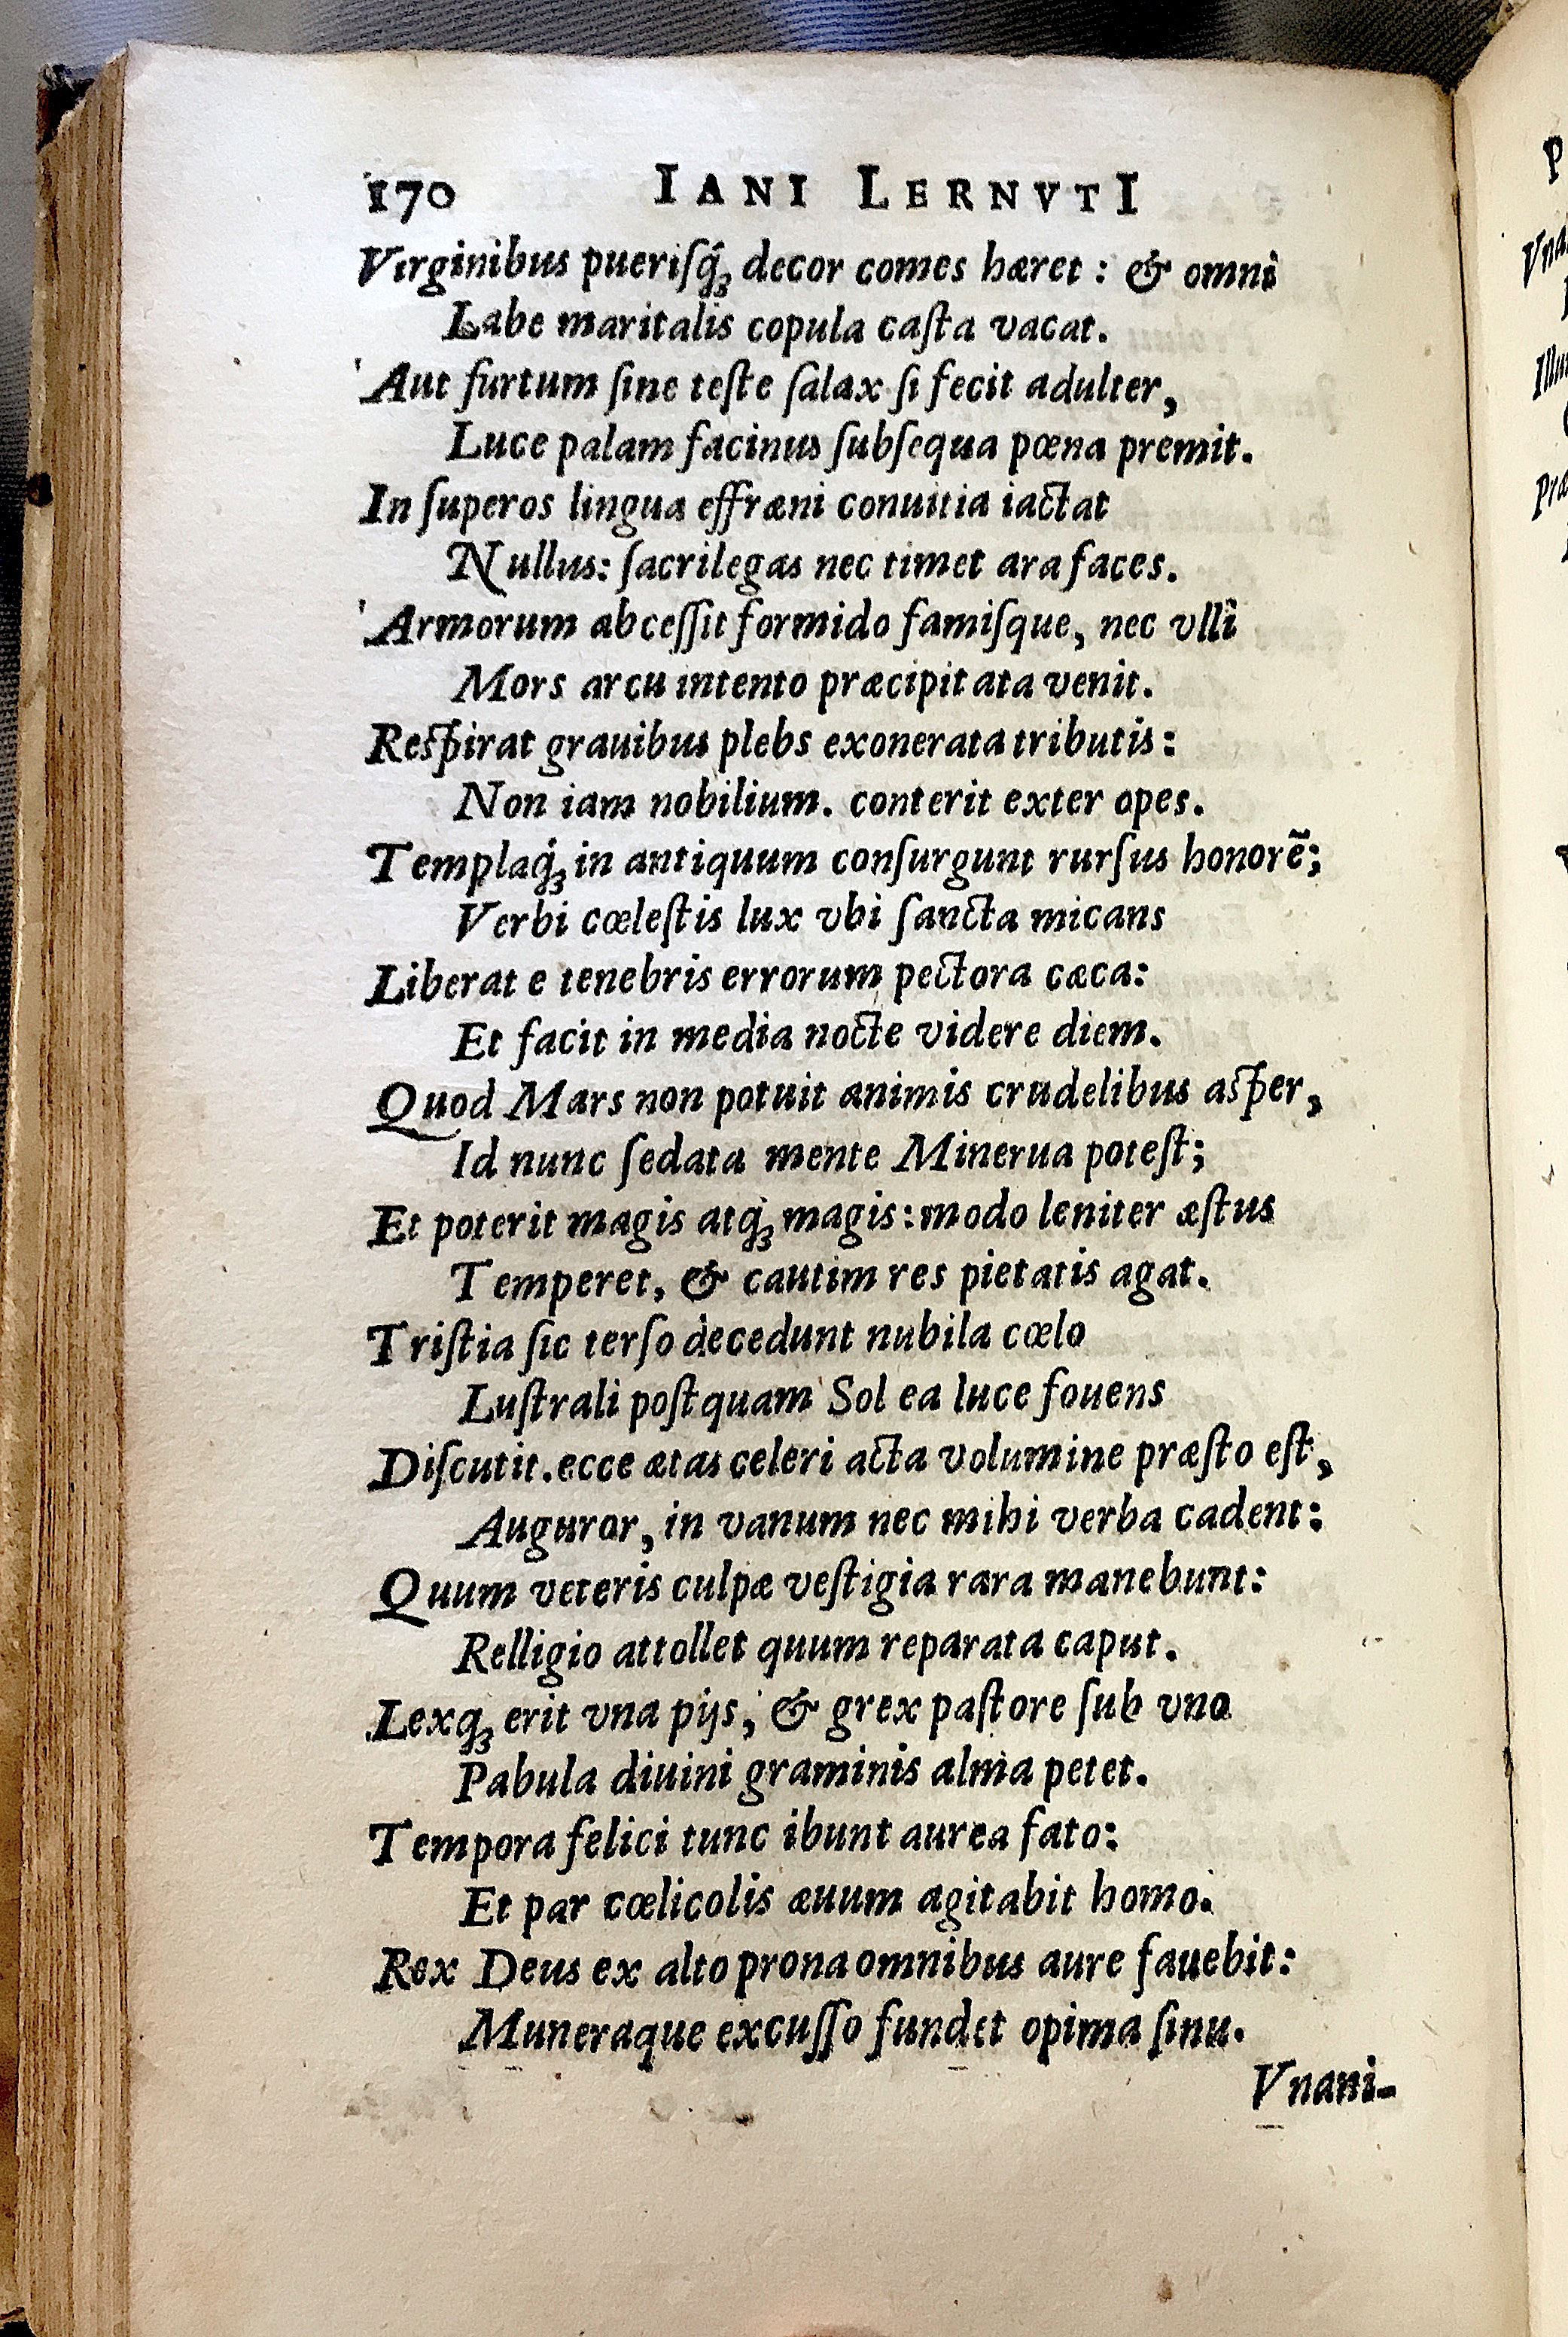 170 IANI LERNVTI
Virginibus puerisq́ꝫ decor comes hæret : & omni
Labe maritalis copula caſta vacat.
Aut furtum ſine teſte ſalax ſi fecit adulter,
Luce palam facinus ſubſequa pœna premit.
In ſuperos lingua effræni conuitia iactat
Nullus: ſacrilegas nec timet ara faces.
Armorum abceſſit formido famiſque, nec vlli
Mors arcu intento præcipitata venit.
Reſpirat grauibus plebs exonerata tributis:
Non iam nobilium. conterit exter opes.
Templaq́ꝫ in antiquum conſurgunt rurſus honorē;
Verbi cœleſtis lux vbi ſancta micans
Liberat e tenebris errorum pectora cæca:
Et facit in media nocte videre diem.
Quod Mars non potuit animis crudelibus aſper,
Id nunc ſedata mente Minerua poteſt;
Et poterit magis atq́ꝫ magis: modo leniter æſtus
Temperet, & cautim res pietatis agat.
Triſtia ſic terſo decedunt nubila cœlo
Luſtrali poſtquam Sol ea luce fouens
Diſcutit. ecce ætas celeri acta volumine præſto eſt,
Auguror, in vanum nec mihi verba cadent:
Quum veteris culpæ veſtigia rara manebunt:
Relligio attollet quum reparata caput.
Lexqꝫ erit vna pijs, & grex paſtore ſub vno
Pabula diuini graminis alma petet.
Tempora felici tunc ibunt aurea fato:
Et par cœlicolis æuum agitabit homo.
Rex Deus ex alto prona omnibus aure fauebit:
Muneraque excuſſo fundet opima ſinu.
Vnani-